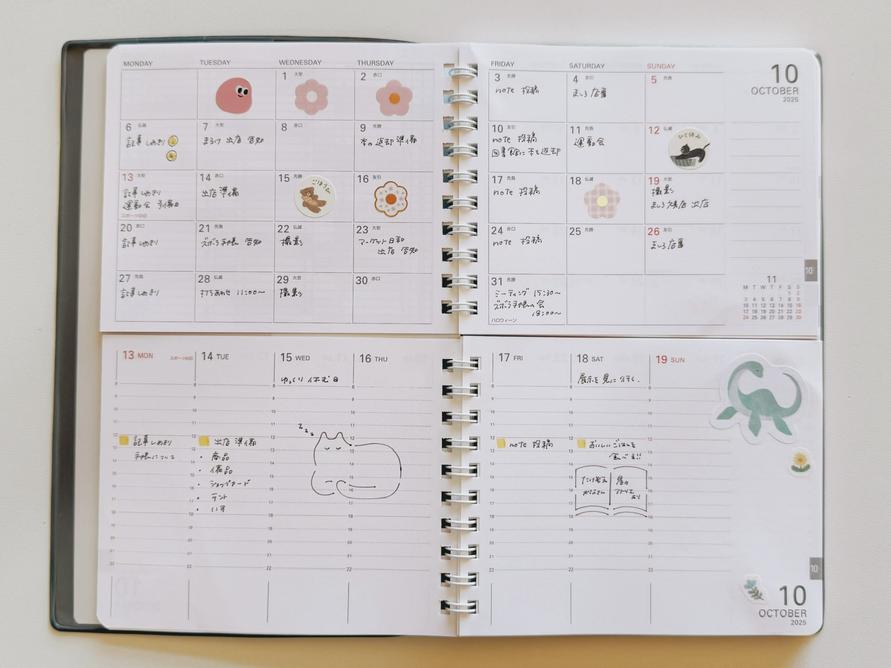 MONDAY TUESDAY WEDNESDAY THURSDAY
1 大安 2 赤口
6 仏滅 7 大安 8 赤口 9 先勝
記事しめきり
まるけ 出店 告知
本の返却 準備
13 大安 14 赤口 15 先勝 16 友引
記事しめきり
運動会 予備日
スポーツの日
出店準備
ごほうび
20 赤口 21 先負 22 仏滅 23 大安
記事しめきり
ズボラ手帳 告知
撮影
マーケット日和
出店 告知
27 先負 28 仏滅 29 大安 30 赤口
記事しめきり
打ちあわせ 11:00〜
撮影
FRIDAY SATURDAY SUNDAY
10
OCTOBER
2025
3 先勝 4 友引 5 先負
note 投稿
ましろ 店番
10 友引 11 先負 12 仏滅
note 投稿
図書館に本を返却
運動会
17 先負 18 仏滅 19 大安
note 投稿
撮影
出店
24 赤口 25 26
note 投稿
ましろ 店番
31 先勝
ミーティング 15:30〜
ズボラ手帳の会
18:00〜
ハロウィーン
10
11
M T W T F S S
1 2
3 4 5 6 7 8 9
10 11 12 13 14 15 16
17 18 19 20 21 22 23
24 25 26 27 28 29 30
13 MON スポーツの日 14 TUE 15 WED 16 THU
ゆっくり 休む日
記事しめきり
手帳について
出店 準備
・ 商品
・ 備品
・ ショップカード
・ テント
・ いす
z z z
17 FRI 18 SAT 19 SUN
展示を見に行く.
note 投稿
おいしいごはんを
食べる!!
10
10
OCTOBER
2025